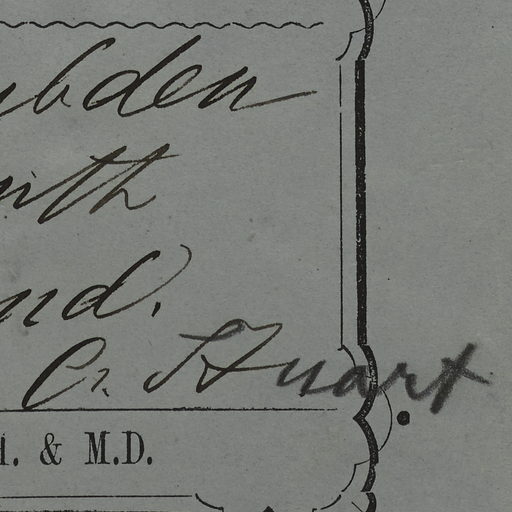 bden
ith
nd.
C. Stuart
M. & M.D.